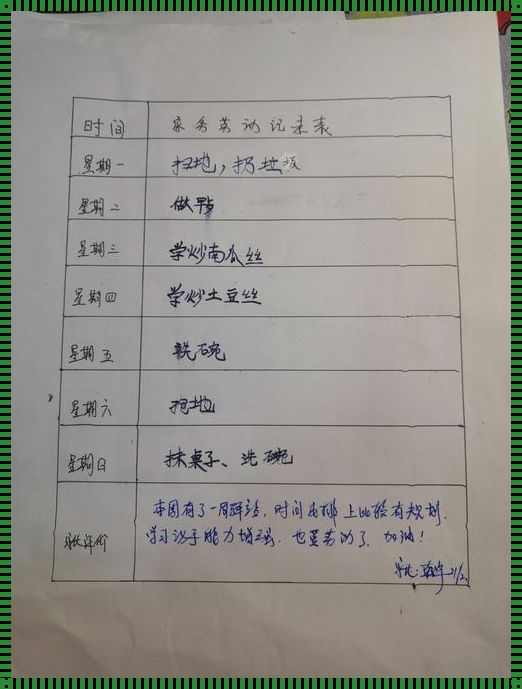 时间 家务劳动记录表
星期一 扫地，扔垃圾
星期二 做早
星期三 学炒南瓜丝
星期四 学炒土豆丝
星期五 洗碗
星期六 扫地
星期日 抹桌子、洗碗
评价 本周有了一周 时间安排上比较有规划.
学习 能力增强. 也更 了. 加油！
家长: 21/2.